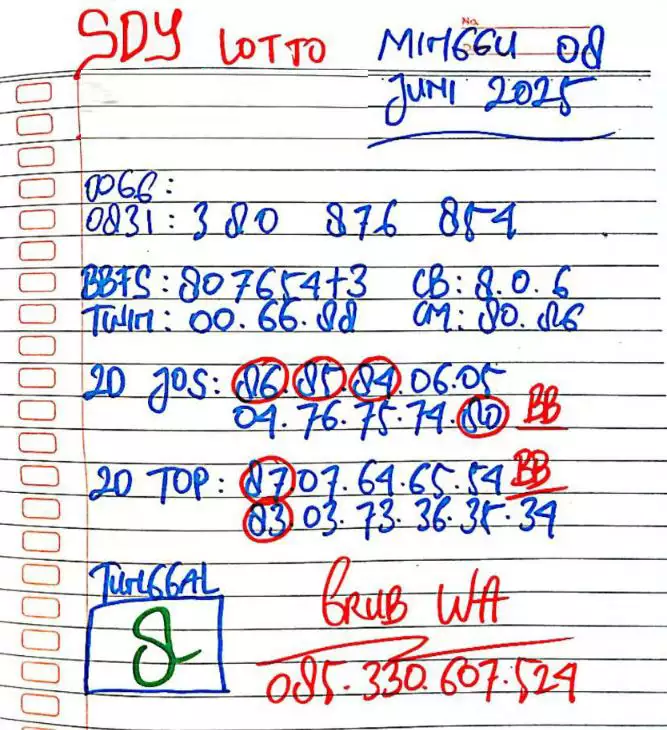 No.
SDY LOTTO MINGGU 08
JUNI 2025
0066:
0831: 380 876 854
BBFS: 807654+3 CB: 8.0.6
TWIN: 00.66.88 CM: 80.86
20 JOS: 86.85.84.06.05
04.76.75.74.80 BB
20 TOP: 87 07.64.65.54 BB
83 03.73.36.35.34
TUNGGAL
8
GRUB WA
085.330.607.524